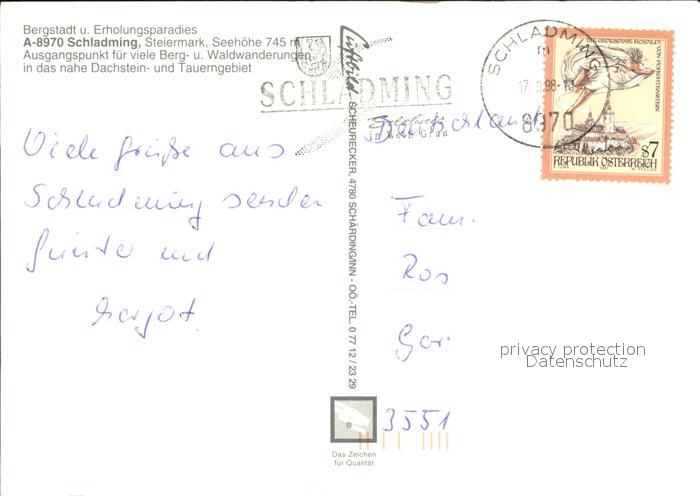 Bergstadt u. Erholungsparadies
A-8970 Schladming, Steiermark, Seehöhe 745 m
Ausgangspunkt für viele Berg- u. Waldwanderungen
in das nahe Dachstein- und Tauerngebiet
Viele Grüße aus
Schladming senden
Günter und
Margot.
Luftbild - SCHEURECKER, 4780 SCHÄRDING/INN - OÖ.-TEL. 0 77 12 / 23 29
SCHLADMING
SCHLADMING
8970
DIE
ROSALIA VON FORCHTENSTEIN
S7
REPUBLIK ÖSTERREICH
Deutschland
Fam.
Ros
Gar.
privacy protection
Datenschutz
3551
Das Zeichen
für Qualität